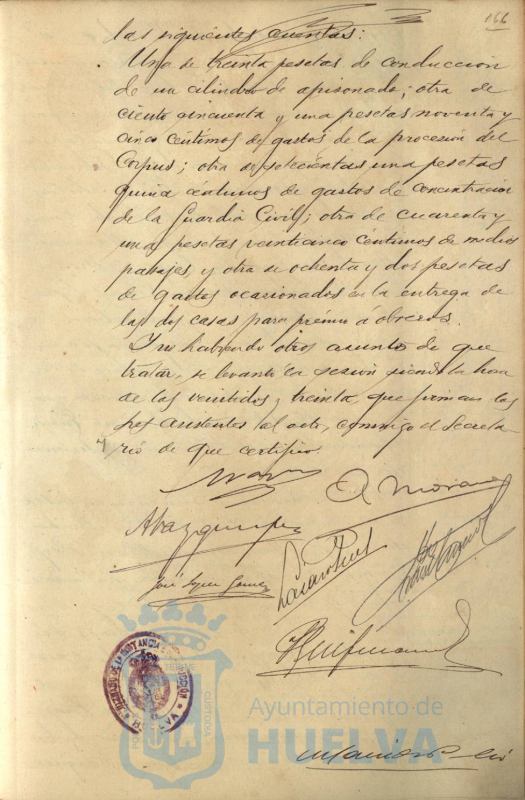 166
las siguientes cuentas:
Una de treinta pesetas de conducción
de un cilindro de apisonado; otra de
ciento cincuenta y una pesetas noventa y
cinco céntimos de gastos de la procesión del
Corpus; otra de setecientas una pesetas
quince céntimos de gastos de concentración
de la Guardia Civil; otra de cuarenta y
una pesetas veinticinco céntimos de medios
pasajes, y otra de ochenta y dos pesetas
de gastos ocasionados en la entrega de
las dos casas para premio á obreros.
Y no habiendo otros asuntos de que
tratar, se levantó la sesión siendo la hora
de las veintidos y treinta, que firman los
Sres. asistentes al acto, conmigo el Secreta-
rio de que certifico.
A. Moreno
José López Gómez
Lázaro
JUZGADO DE 1ª INSTANCIA INSTRUCCIÓN
HUELVA
Ayuntamiento de
HUELVA